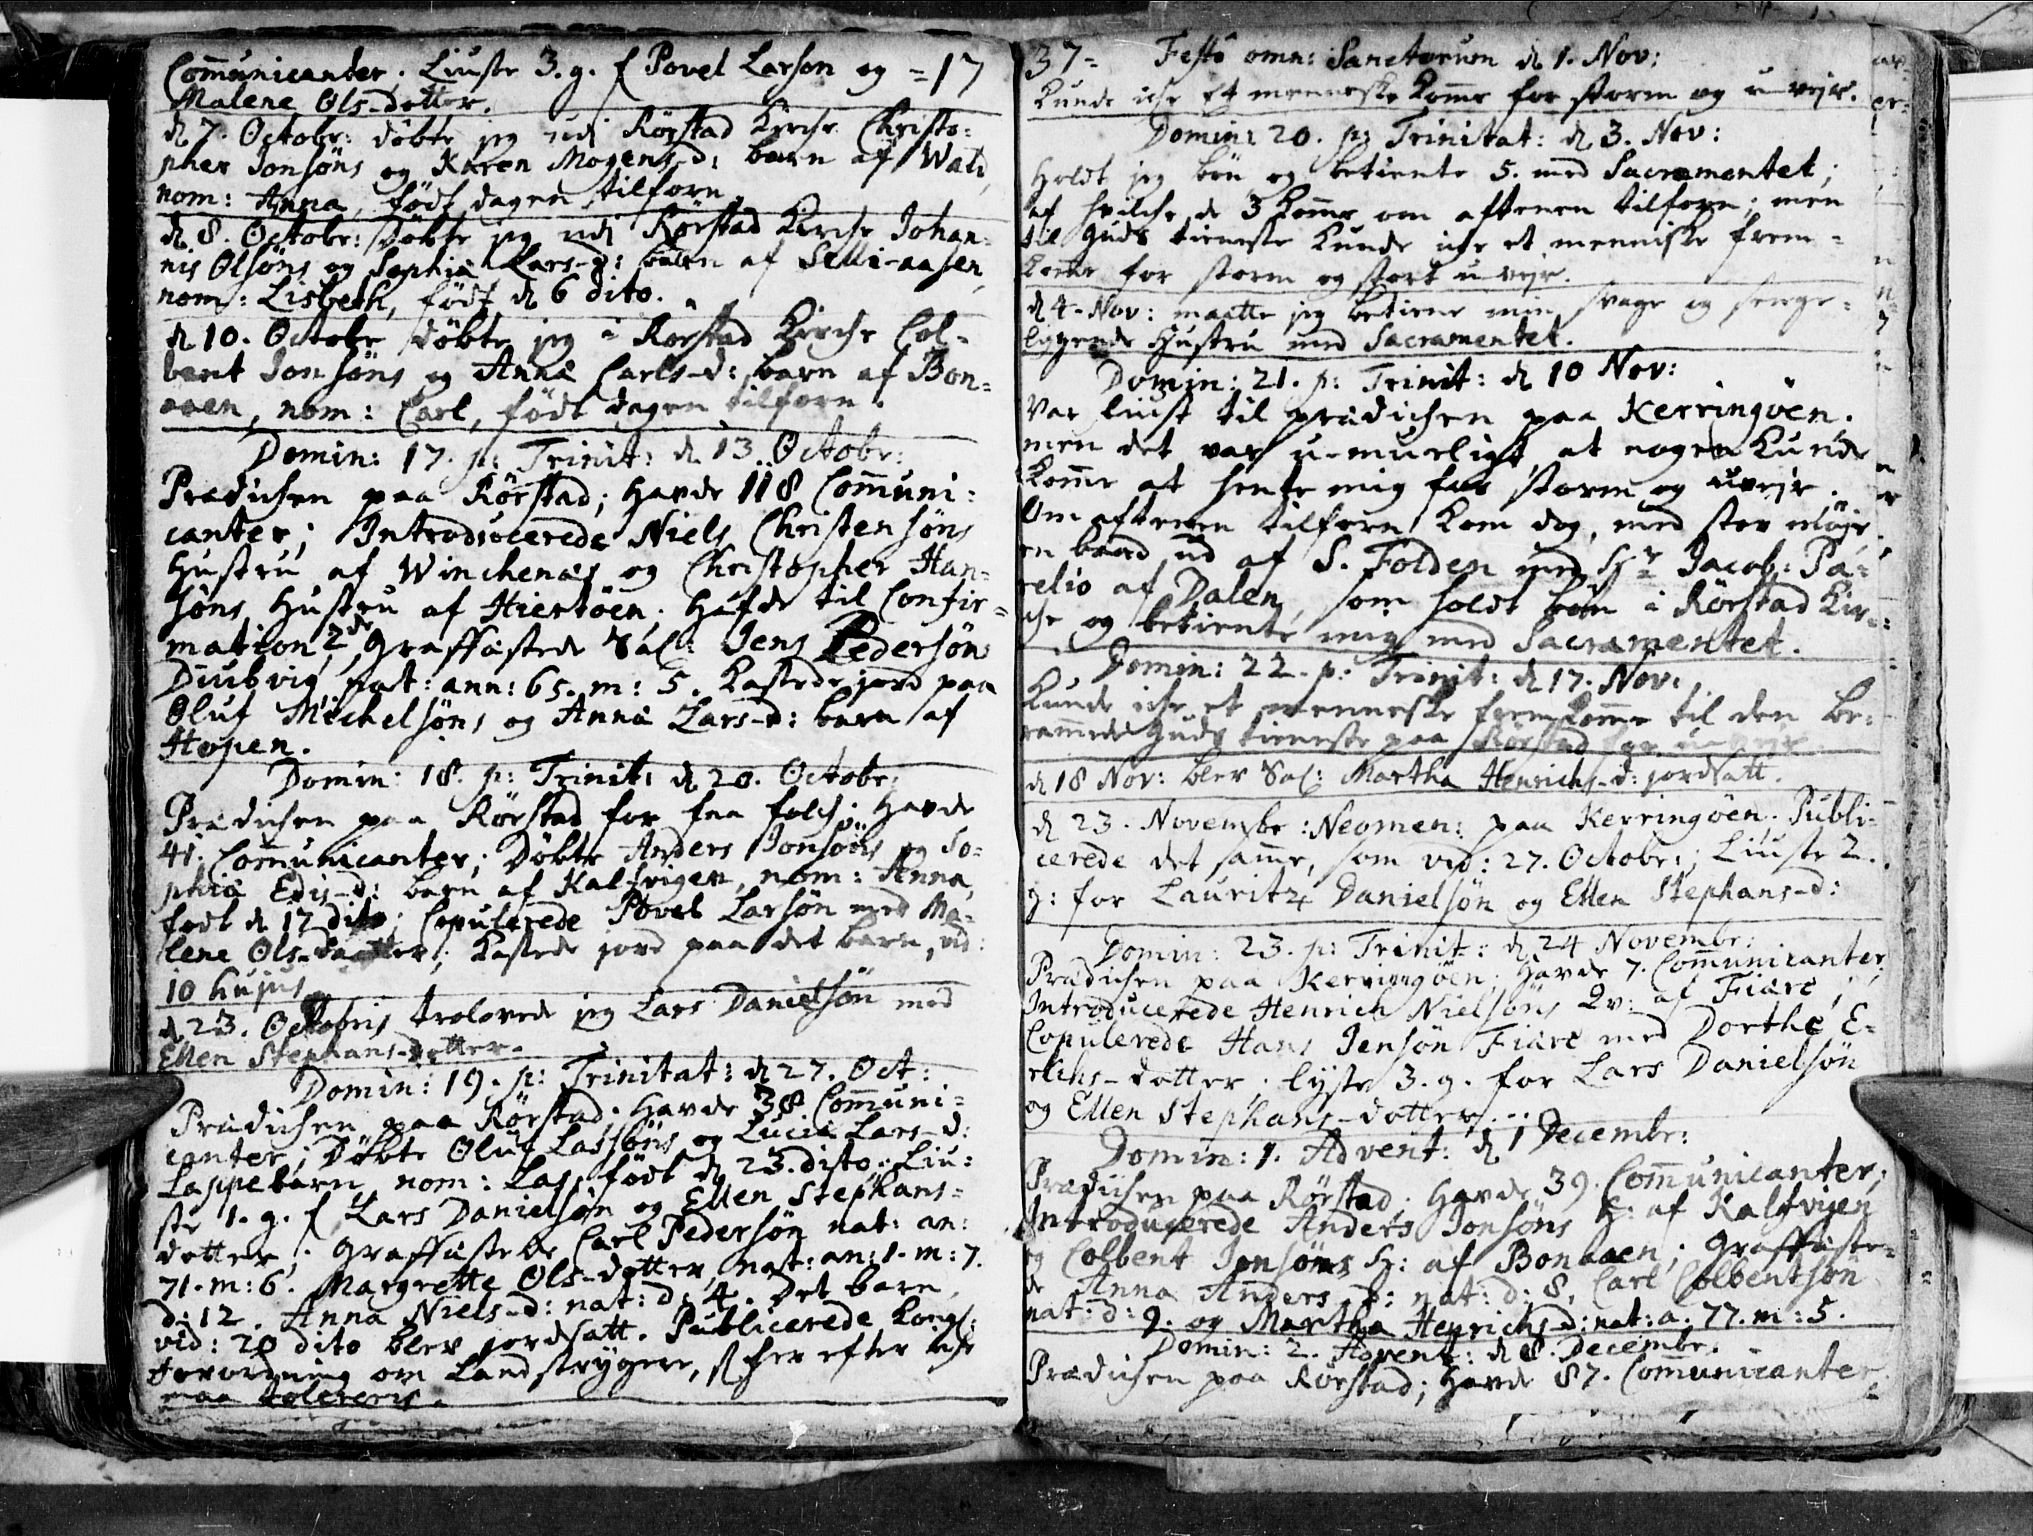 Com̄unicanter. Liuste 3. g. f Povel Larsøn og =17
Malene Ols-dotter.
d 7. Octobr: døbte jeg udj Rørstad Kirche Christo-
pher Jonsøns og Karen Mogens-d: barn af Wald,
nom: Anna, født dagen tilforn.
d 8. Octobr: døbte jeg udj Rørstad Kirche Johan-
nis Olsøns og Sophia Lars-d: barn af Selli-aasen,
nom: Lisbeth, født d 6 dito.
d 10. Octobr døbte jeg i Rørstad Kirche Col-
bent Jonsøns og Anna Carls-d: barn af Bon-
aaen, nom: Carl, født dagen tilforn.
Domin: 17. p: Trinit: d 13. Octobr:
Prædichen paa Rørstad; Havde 118 Com̄uni-
canter; Introducerede Niels Christensøns
Hustru af Winchenæs og Christopher Han-
søns Hustru af Hiertøen. Hafde til Confir-
mation 2de, Graffæstede Sal: Jens Pedersøn
Diubvig nat: ann: 65. m: 5. Kastede jord paa
Oluf Michelsøns og Anna Lars-d: barn af
Hopen.
Domin: 18. p: Trinit: d 20. Octobr:
Prædichen paa Rørstad for faa folch; Havde
41. Com̄unicanter; Døbte Anders Jonsøns og So-
phia Edis-d: barn af Kalfvigen, nom: Anna,
født d 17 dito; Copulerede Povel Larsøn med Ma-
lene Ols-daatter; Kastede jord paa det barn, vid:
10 hujus.
d 23. Octobris trolovede jeg Lars Danielsøn med
Ellen Stephans-dotter.
Domin: 19. p: Trinitat: d 27. Oct:
Prædichen paa Rørstad; Havde 38 Com̄uni-
canter; Døbte Oluf Lassøns og Lucia Lars-d:
Lappebarn, nom: Las, født d 23. disto; Liu-
ste 1. g. f Lars Danielsøn og Ellen Stephans-
dotter; Graffæstede Carl Pedersøn nat: an:
71. m: 6. Margrette Ols-dotter, nat: an: 1. m: 7.
d: 12. Anna Niels-d: nat: d: 4. Det barn
vid: 20 dito blev jordsatt. Publicerede Kongl:
Forordning om Landstrygere, her efter iche
maa tolereris.
37= Festo omn: Sanctorum d 1. Nov:
Kunde iche et menneske kom̄e for storm og u-vejr.
Domin: 20. p: Trinitat: d 3. Nov:
Holdt jeg bøn og betiente 5. med Sacramentet;
af hvilche de 3 kom̄e om aftenen tilforn; men
til Guds tieneste kunde iche et menniske frem-
kom̄e for storm og stort u-vejr.
d 4. Nov: maatte jeg betiene min svage og senge-
liggende Hustru med Sacramentet.
Domin: 21. p: Trinit: d 10 Nov:
Var liust til prædichen paa Kerringøen.
men det var u-mueligt, at nogen kunde
kom̄e at hente mig for storm og uvejr.
Om aftenen tilforn kom dog, med stor møje
en baad ud af S. Folden med Hr Jacob: Pa-
relio af Dalen, som holdt bøn i Rørstad Kir-
che og betiente mig med Sacramentet.
Domin: 22. p: Trinit: d 17. Nov:
Kunde iche et menneske fremkom̄e til den be-
ram̄ede Guds tieneste paa Rørstad for u-vejr.
d 18 Nov: blev Sal: Martha Henrichs-d: jordsatt.
d 23. Novembr: Neomen: paa Kerringøen. Publi-
cerede det sam̄e, som vid: 27. Octobr:; Liuste 2.
g: for Lauritz Danielsøn og Ellen Stephans-d:
Domin: 23. p: Trinit: d 24 Novembr:
Prædichen paa Kerringøen; Havde 7. Com̄unicanter;
Introducerede Henrich Nielsøns Qv: af Fiære;
Copulerede Hans Jensøn Fiære med Dorthe E-
richs-dotter; lyste 3. g. for Lars Danielsøn
og Ellen Stephans-dotter.
Domin: 1. Advent: d 1 Decembr:
Prædichen paa Rørstad; Havde 39. Com̄unicanter;
Introducerede Anders Jonsøns H: af Kalfvigen
og Colbent Jonsøns H: af Bonaaen; Graffæste-
de Anna Anders-d: nat: d: 8, Carl Colbentsøn
nat: d: 9. og Martha Henrichs-d: nat: a: 77. m: 5.
Domin: 2. Advent: d 8. Decembr.
Prædichen paa Rørstad; Havde 87. Com̄unicanter